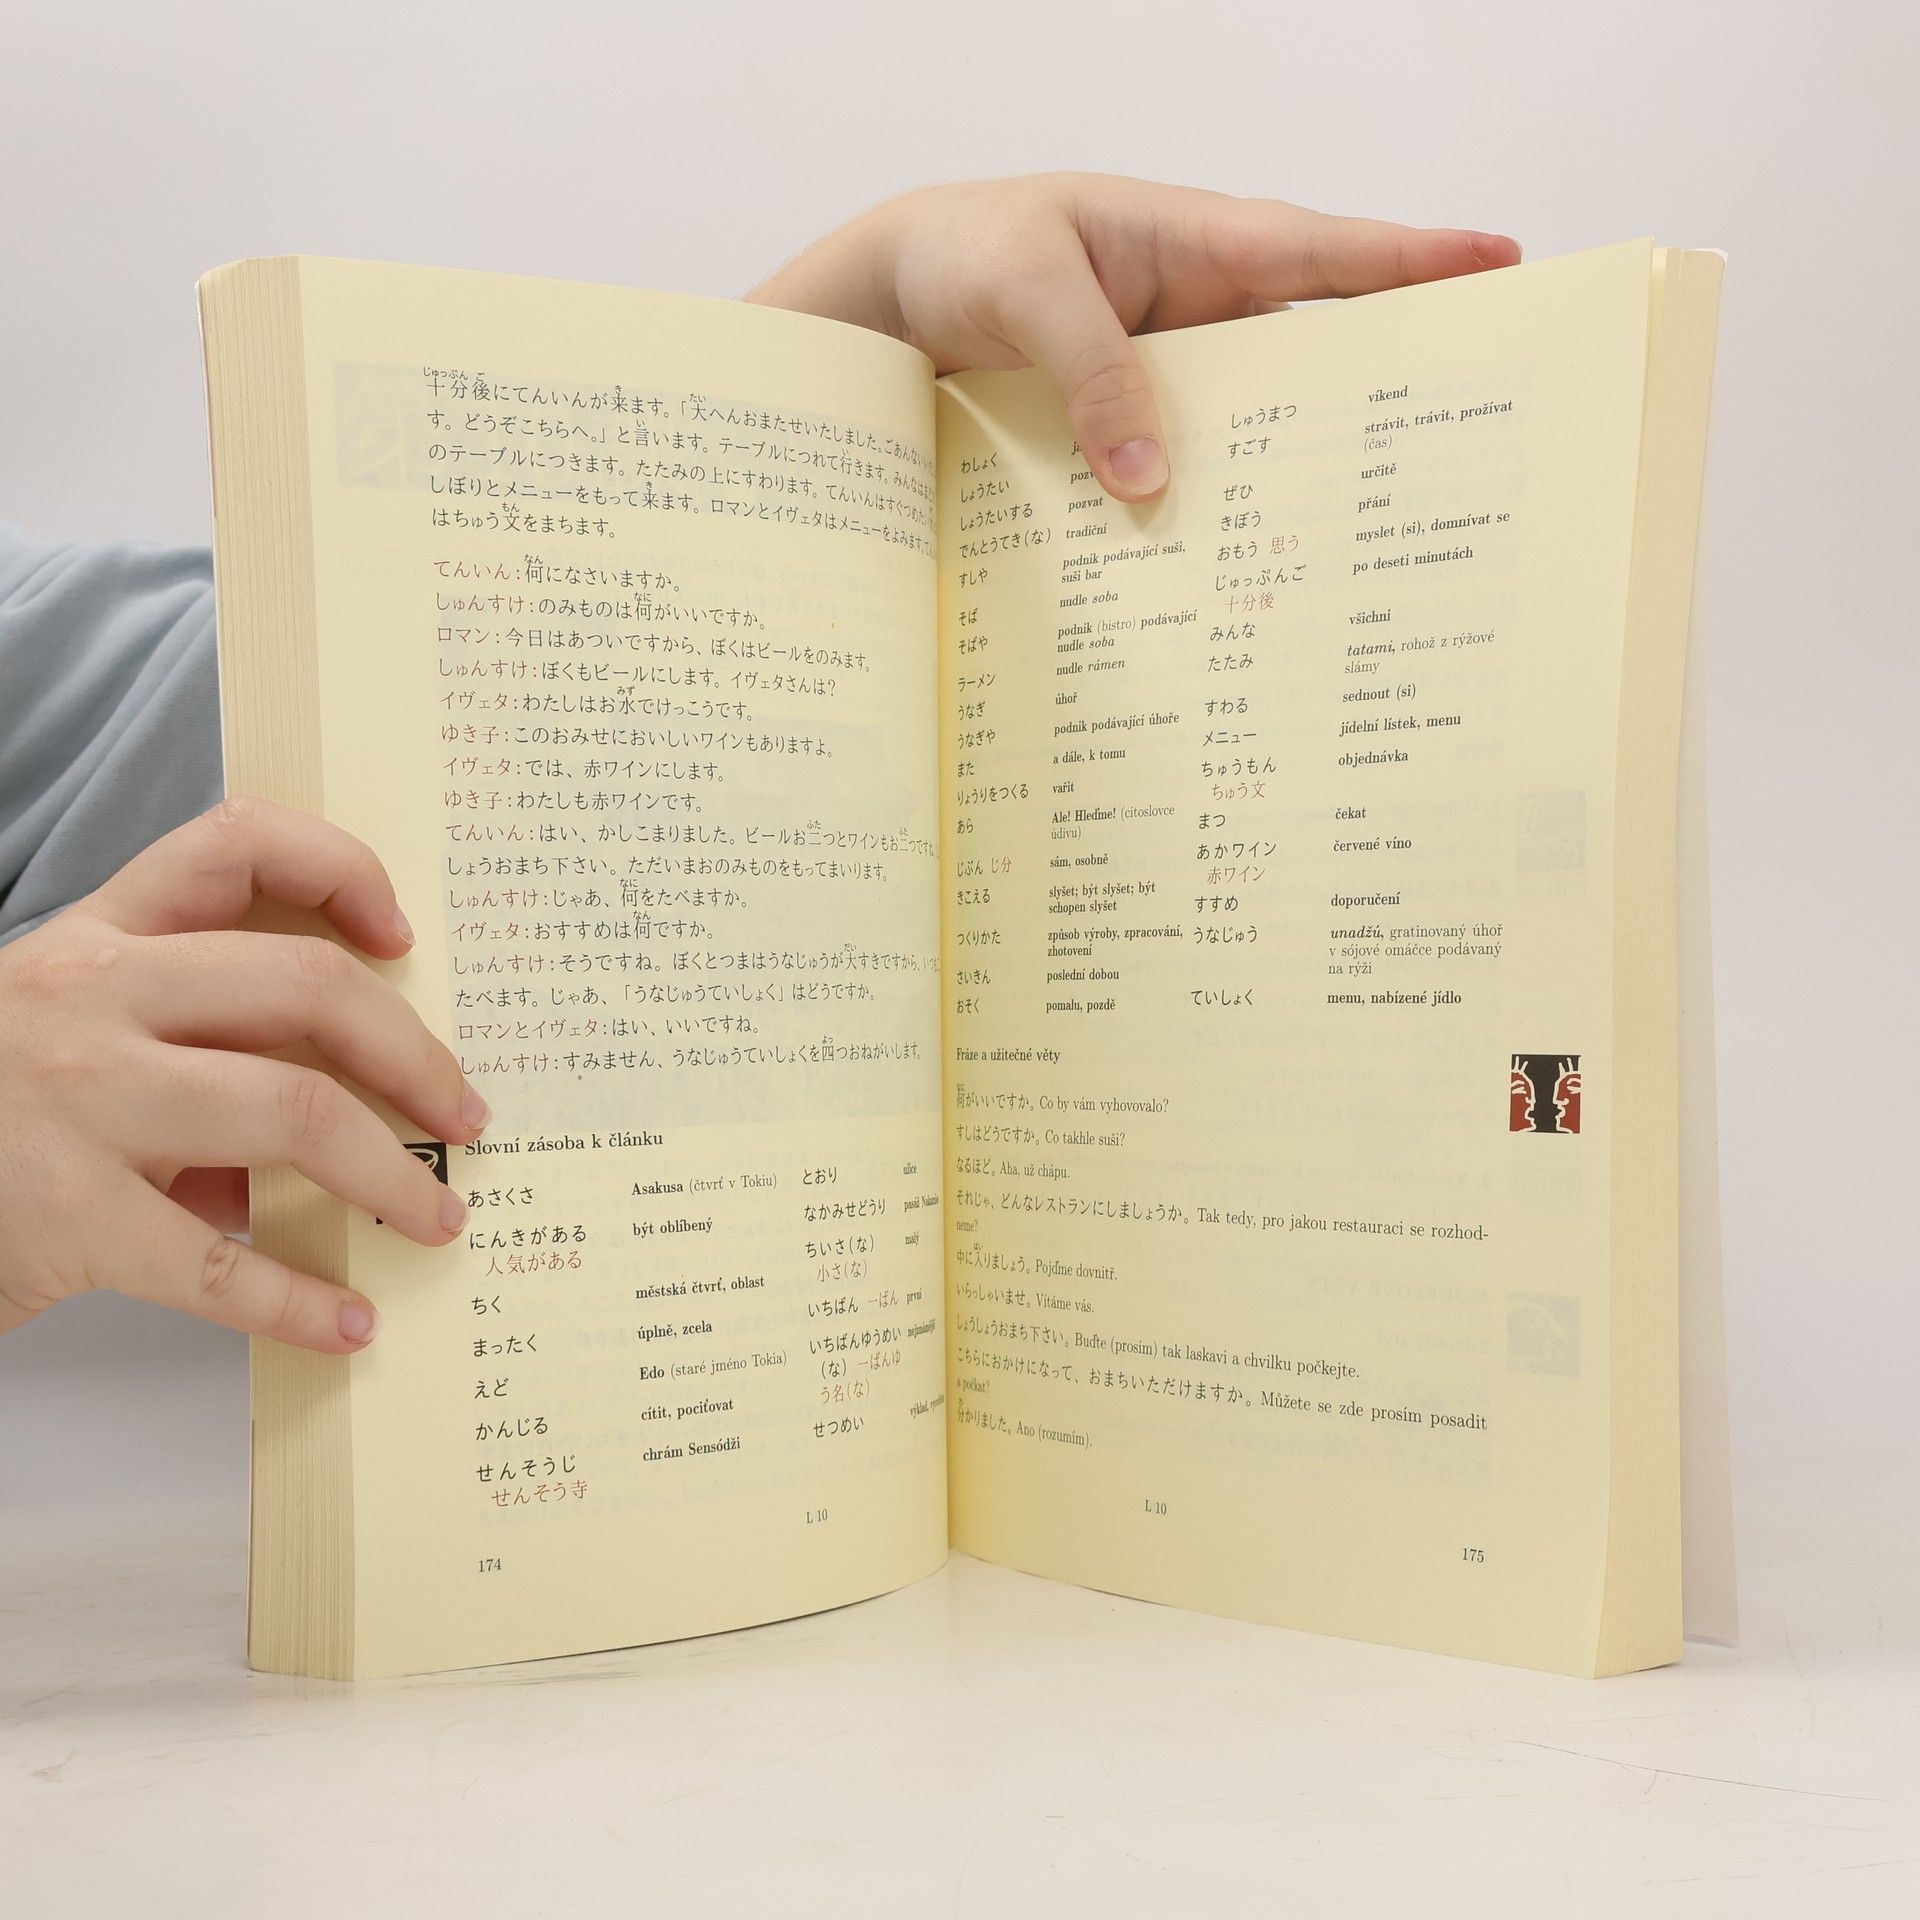 十分後にてんいんが来ます。「大へんおまたせいたしました。ごあんない
す。どうぞこちらへ。」と言います。テーブルにつれて行きます。みんなは
のテーブルにつきます。たたみの上にすわります。てんいんはすぐつめたい
しぼりとメニューをもって来ます。ロマンとイヴェタはメニューをよみます。
はちゅう文をまちます。
てんいん:何になさいますか。
しゅんすけ:のみものは何がいいですか。
ロマン:今日はあついですから、ぼくはビールをのみます。
しゅんすけ:ぼくもビールにします。イヴェタさんは?
イヴェタ:わたしはお水でけっこうです。
ゆき子:このおみせにおいしいワインもありますよ。
イヴェタ:では、赤ワインにします。
ゆき子:わたしも赤ワインです。
てんいん:はい、かしこまりました。ビールお二つとワインもお二つですね。
しょうおまち下さい。ただいまおのみものをもってまいります。
しゅんすけ:じゃあ、何をたべますか。
イヴェタ:おすすめは何ですか。
しゅんすけ:そうですね。ぼくとつまはうなじゅうが大すきですから、
たべます。じゃあ、「うなじゅうていしょく」はどうですか。
ロマンとイヴェタ:はい、いいですね。
しゅんすけ:すみません、うなじゅうていしょくを四つおねがいします。
Slovní zásoba k článku
あさくさ Asakusa (čtvrť v Tokiu)
にんきがある být oblíbený
人気がある
ちく městská čtvrť, oblast
まったく úplně, zcela
えど Edo (staré jméno Tokia)
かんじる cítit, pociťovat
せんそうじ chrám Sensódži
せんそう寺
とおり ulice
なかみせどうり pasáž
ちいさ(な) malý
小さ(な)
いちばん 一ばん první
いちばんゆうめい nejznámější
(な) 一ばんゆ
う名(な)
せつめい výklad,
L 10
174
わしょく
しょうたい
しょうたいする pozvat
でんとうてき(な) tradiční
すしや podnik podávající suši,
suši bar
そば nudle soba
そばや podnik (bistro) podávající
nudle soba
ラーメン nudle rámen
うなぎ úhoř
うなぎや podnik podávající úhoře
また a dále, k tomu
りょうりをつくる vařit
あら Ale! Hleďme! (citoslovce
údivu)
じぶん じ分 sám, osobně
きこえる slyšet; být slyšet; být
schopen slyšet
つくりかた způsob výroby, zpracování,
zhotovení
さいきん poslední dobou
おそく pomalu, pozdě
しゅうまつ víkend
すごす strávit, trávit, prožívat
(čas)
ぜひ určitě
きぼう přání
おもう 思う myslet (si), domnívat se
じゅっぷんご po deseti minutách
十分後
みんな všichni
たたみ tatami, rohož z rýžové
slámy
すわる sednout (si)
メニュー jídelní lístek, menu
ちゅうもん objednávka
ちゅう文
まつ čekat
あかワイン červené víno
赤ワイン
すすめ doporučení
うなじゅう unadžú, gratinovaný úhoř
v sójové omáčce podávaný
na rýži
ていしょく menu, nabízené jídlo
Fráze a užitečné věty
何がいいですか。Co by vám vyhovovalo?
すしはどうですか。Co takhle suši?
なるほど。Aha, už chápu.
それじゃ、どんなレストランにしましょうか。Tak tedy, pro jakou restauraci se rozhod-
neme?
中に入りましょう。Pojďme dovnitř.
いらっしゃいませ。Vítáme vás.
しょうしょうおまち下さい。Buďte (prosím) tak laskavi a chvilku počkejte.
こちらにおかけになって、おまちいただけますか。Můžete se zde prosím posadit
a počkat?
分かりました。Ano (rozumím).
L 10
175